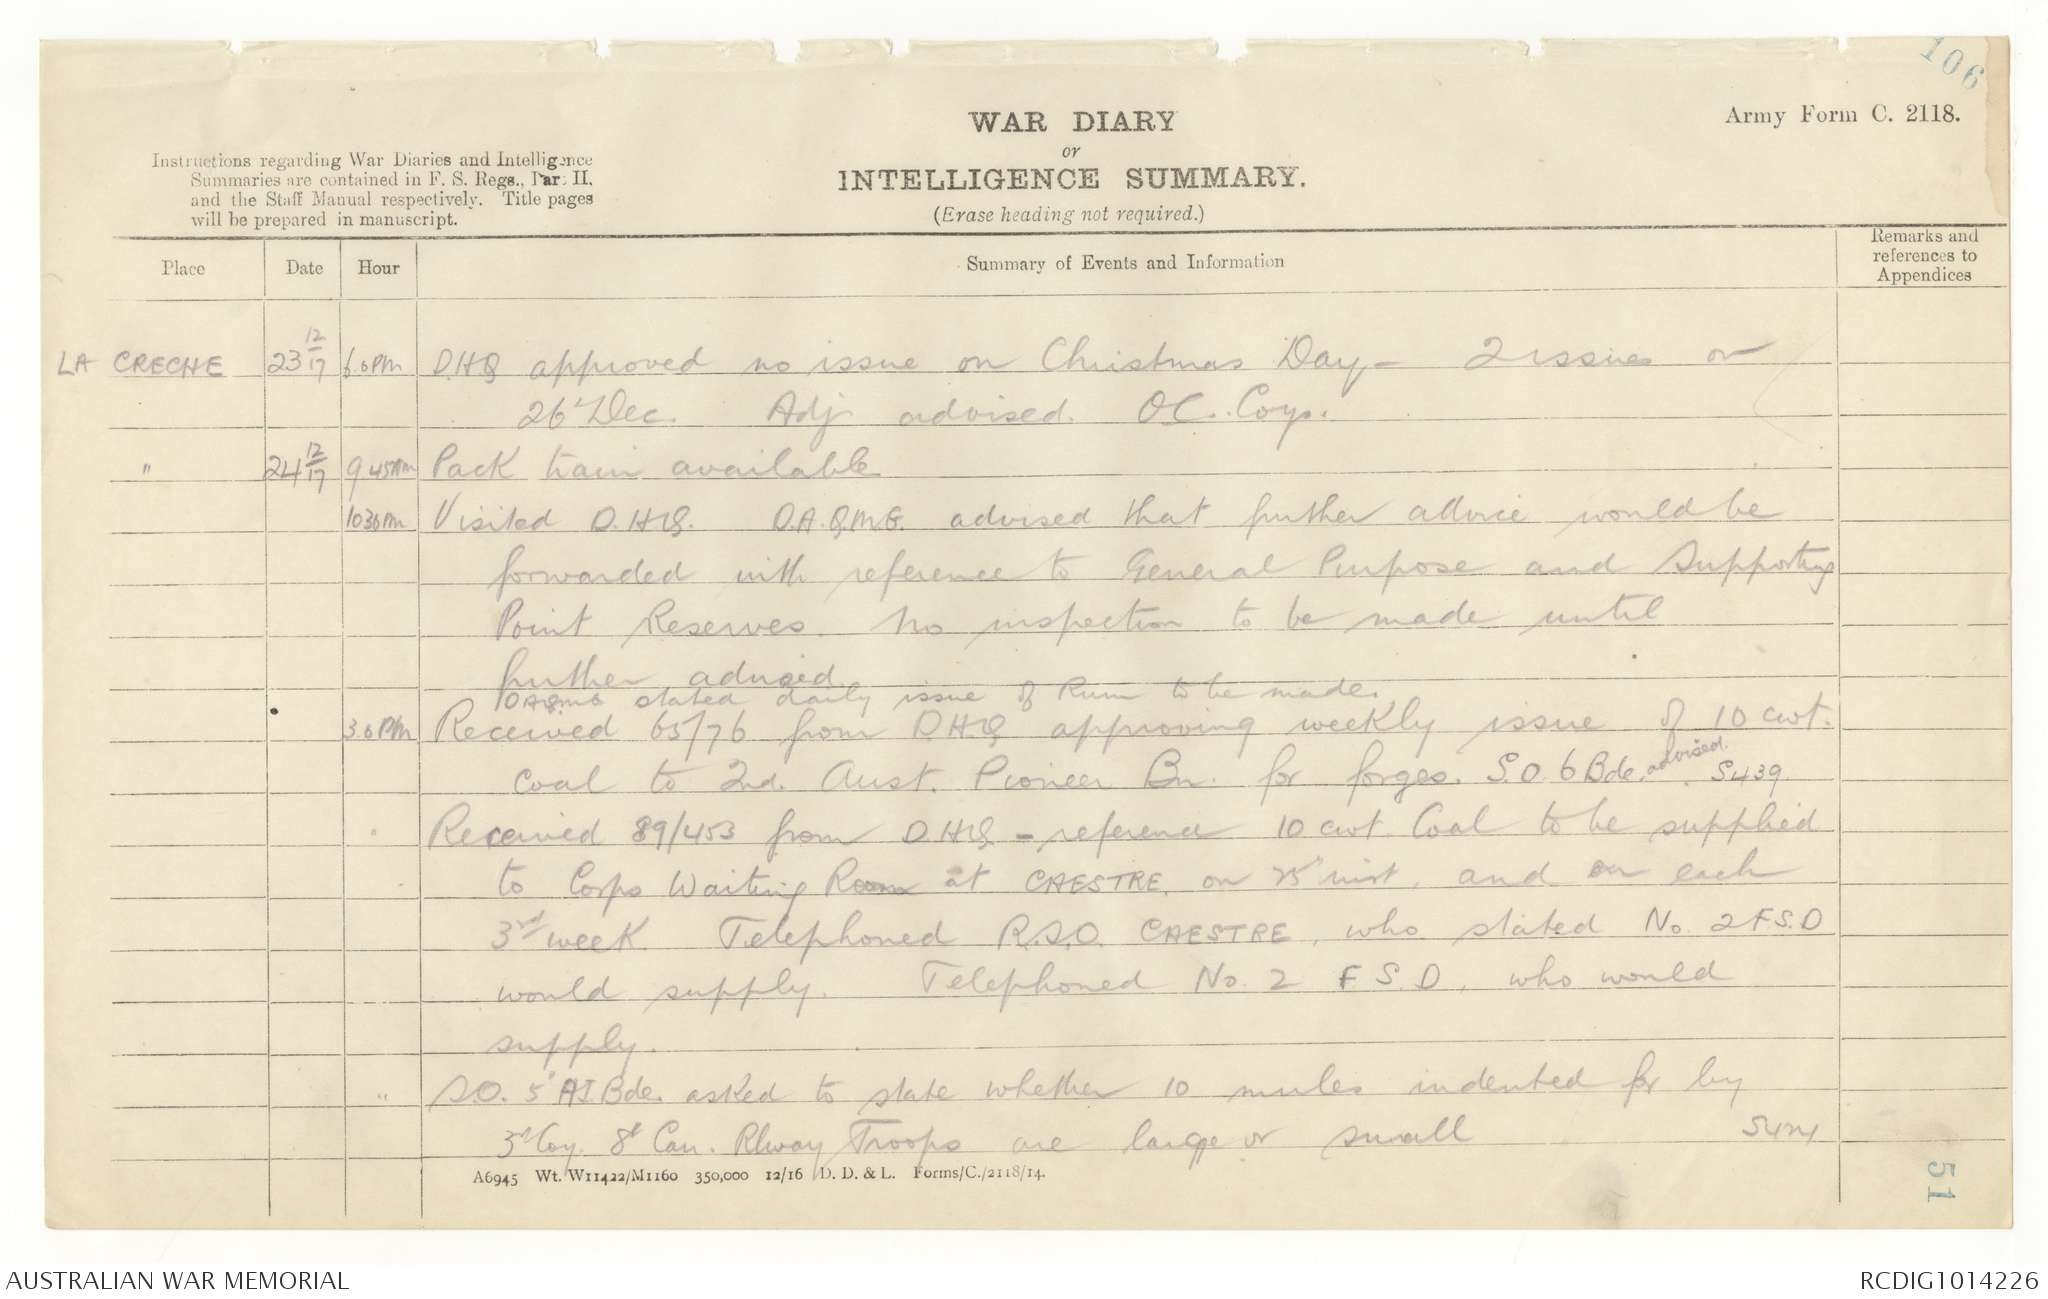 106
Army Form C. 2118.
WAR DIARY
or
INTELLIGENCE SUMMARY.
(Erase heading not required.)
Instructions regarding War Diaries and Intelligence
Summaries are contained in F. S. Regs., Part II.
and the Staff Manual respectively. Title pages
will be prepared in manuscript.
Place Date Hour Summary of Events and Information Remarks and references to Appendices
LA CRECHE 23 12/17 6.0 PM D.H.Q approved no issue on Christmas Day - 2 issues on
26' Dec. Adj. advised O.C. Coys.
" 24 12/17 9.45AM Pack train available
10.30 AM Visited D.H.Q. D.A.Q.M.G. advised that further advice would be
forwarded with reference to General Purpose and Supporting
Point Reserves. No inspection to be made until
further advised.
DAQMG stated daily issue of Rum to be made.
3.0 PM Received 65/76 from D.H.Q approving weekly issue of 10 cwt.
coal to 2nd. Aust. Pioneer Bn. for forges. S.O. 6 Bde. advised. S439
Received 89/453 from D.H.Q - reference 10 cwt Coal to be supplied
to Corps Waiting Room at CAESTRE, on 25' inst, and on each
3rd week. Telephoned R.S.O. CAESTRE, who stated No. 2 F.S.D
would supply. Telephoned No. 2 F.S.D, who would
supply.
" S.O. 5' A.I. Bde. asked to state whether 10 mules indented for by
3rd Coy. 8th Can. Rlway Troops are large or small
A6945 Wt. W11422/M1160 350,000 12/16 D. D. & L. Forms/C./2118/14.
51
AUSTRALIAN WAR MEMORIAL
RCDIG1014226